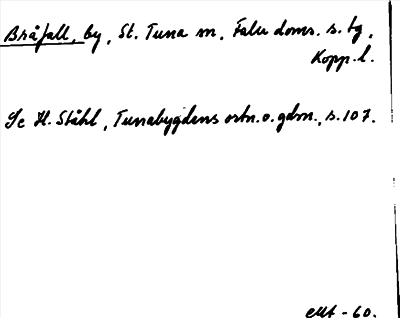 Bråfall, by, St. Tuna sn, Falu doms. s. tg,
Kopp. l.
Se H. Ståhl, Tunabygdens ortn. o. gdn., s. 107.
- 60.